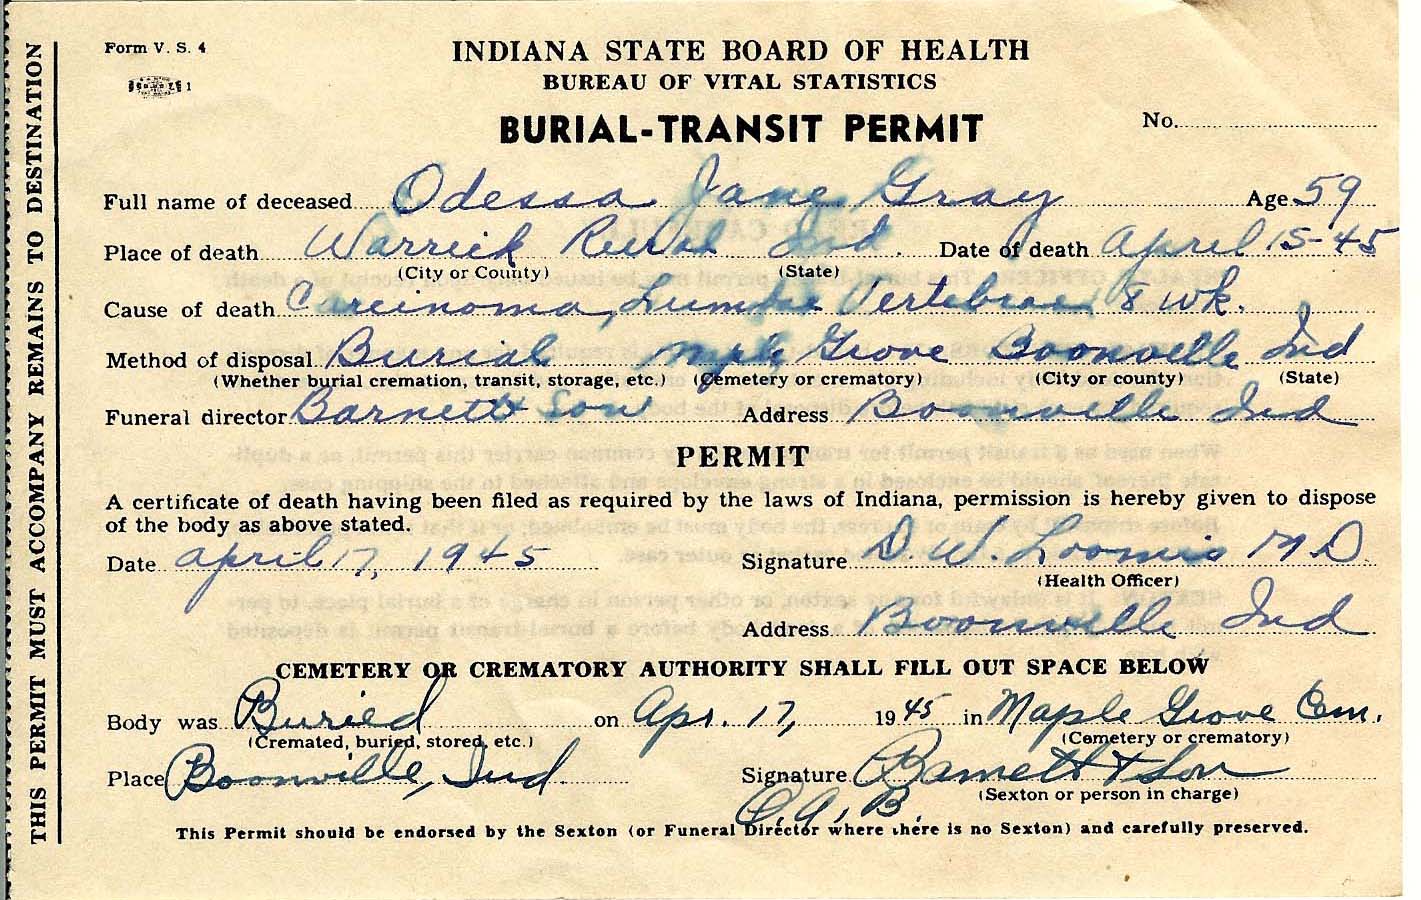 Form V. S. 4
1
INDIANA STATE BOARD OF HEALTH
BUREAU OF VITAL STATISTICS
BURIAL-TRANSIT PERMIT
No.
THIS PERMIT MUST ACCOMPANY REMAINS TO DESTINATION
Full name of deceased Odessa Jane Gray Age 59
Place of death Warrick Rural Ind. Date of death April 15-45
(City or County) (State)
Cause of death Carcinoma, Lumbar Vertebrae 8 wk.
Method of disposal Burial Maple Grove Boonville Ind
(Whether burial cremation, transit, storage, etc.) (Cemetery or crematory) (City or county) (State)
Funeral director Barnett & Son Address Boonville Ind
PERMIT
A certificate of death having been filed as required by the laws of Indiana, permission is hereby given to dispose
of the body as above stated.
Date April 17, 1945 Signature D W. Loomis M D.
(Health Officer)
Address Boonville Ind
CEMETERY OR CREMATORY AUTHORITY SHALL FILL OUT SPACE BELOW
Body was Buried on Apr. 17, 1945 in Maple Grove Cem.
(Cremated, buried, stored, etc.) (Cemetery or crematory)
Place Boonville, Ind. Signature Barnett & Son
(Sexton or person in charge)
O. A. B.
This Permit should be endorsed by the Sexton (or Funeral Director where there is no Sexton) and carefully preserved.